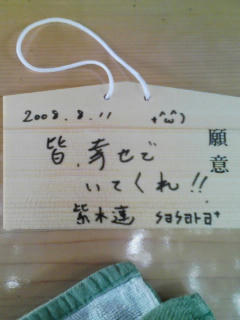 2008.8.11 +^ω^)
願意
皆、幸せで
いてくれ!!
紫木蓮 sasara+